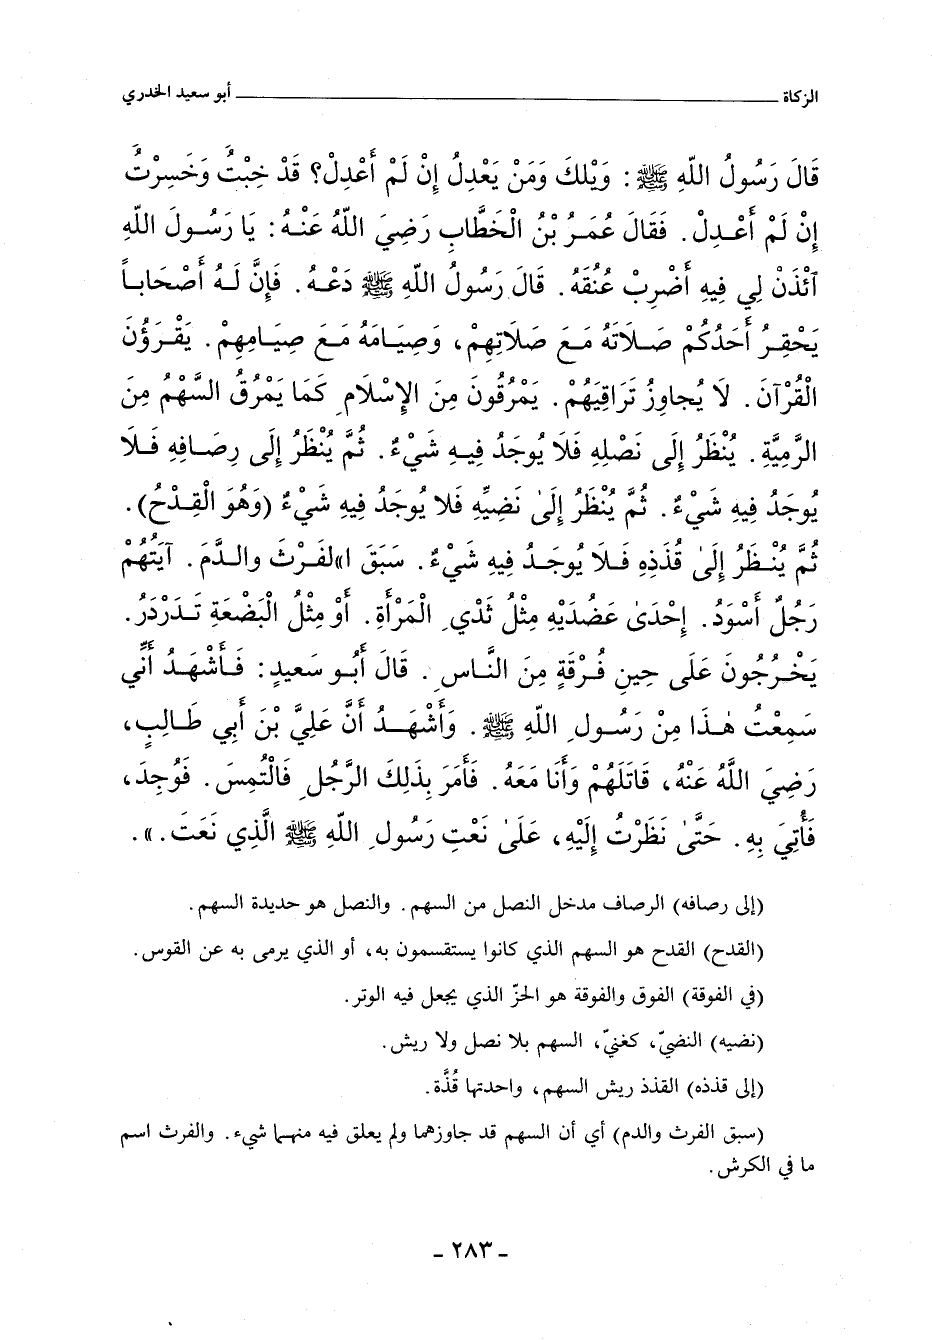 الزكاة ــــــــــ أبو سعيد الخدري
قَالَ رَسُولُ اللّهِ ﷺ : وَيْلَكَ وَمَنْ يَعْدِلُ إِنْ لَمْ أَعْدِلْ؟ قَدْ خِبْتُ وَخَسِرْتُ
إِنْ لَمْ أَعْدِلْ. فَقَالَ عُمَرُ بْنُ الْخَطَّابِ رَضِيَ اللّهُ عَنْهُ: يَا رَسُولَ اللّهِ
آئْذَنْ لِي فِيهِ أَضْرِبْ عُنُقَهُ. قَالَ رَسُولُ اللّهِ ﷺ دَعْهُ. فَإِنَّ لَهُ أَصْحَاباً
يَحْقِرُ أَحَدُكُمْ صَلَاتَهُ مَعَ صَلَاتِهِمْ، وَصِيَامَهُ مَعَ صِيَامِهِمْ. يَقْرَؤُنَ
الْقُرْآنَ. لَا يُجاوِزُ تَرَاقِيَهُمْ. يَمْرُقُونَ مِنَ الإِسْلَامِ كَمَا يَمْرُقُ السَّهْمُ مِنَ
الرَّمِيَّةِ. يُنْظَرُ إِلَى نَصْلِهِ فَلَا يُوجَدُ فِيهِ شَيْءٌ. ثُمَّ يُنْظَرُ إِلَى رِصَافِهِ فَلَا
يُوجَدُ فِيهِ شَيْءٌ. ثُمَّ يُنْظَرُ إِلَىٰ نَضِيِّهِ فَلا يُوجَدُ فِيهِ شَيْءٌ (وَهُوَ الْقِدْحُ).
ثُمَّ يُنْظَرُ إِلَىٰ قُذَذِهِ فَلَا يُوجَدُ فِيهِ شَيْءٌ. سَبَقَ ا»لفَرْثَ والدَّمَ. آيَتُهُمْ
رَجُلٌ أَسْوَدُ. إِحْدَىٰ عَضُدَيْهِ مِثْلُ ثَدْيِ الْمَرْأَةِ. أَوْ مِثْلُ الْبَضْعَةِ تَدَرْدَرُ.
يَخْرُجُونَ عَلَى حِينِ فُرْقَةٍ مِنَ النَّاسِ. قَالَ أَبُو سَعِيدٍ: فَأَشْهَدُ أَنِّي
سَمِعْتُ هٰذَا مِنْ رَسُولِ اللّهِ ﷺ. وَأَشْهَدُ أَنَّ عَلِيَّ بْنَ أَبِي طَالِبٍ،
رَضِيَ اللَّهُ عَنْهُ، قَاتَلَهُمْ وَأَنَا مَعَهُ. فَأَمَرَ بِذَلِكَ الرَّجُلِ فَالْتُمِسَ. فَوُجِدَ،
فَأُتِيَ بِهِ. حَتَّىٰ نَظَرْتُ إِلَيْهِ، عَلَىٰ نَعْتِ رَسُولِ اللّهِ ﷺ الَّذِي نَعَتَ.».
(إلى رصافه) الرصاف مدخل النصل من السهم. والنصل هو حديدة السهم.
(القدح) القدح هو السهم الذي كانوا يستقسمون به، أو الذي يرمى به عن القوس.
(في الفوقة) الفوق والفوقة هو الحزّ الذي يجعل فيه الوتر.
(نضيه) النضيّ، كغنيّ، السهم بلا نصل ولا ريش.
(إلى قذذه) القذذ ريش السهم، واحدتها قُذَّة.
(سبق الفرث والدم) أي أن السهم قد جاوزهما ولم يعلق فيه منهما شيء. والفرث اسم
ما في الكرش.
- ٢٨٣ -